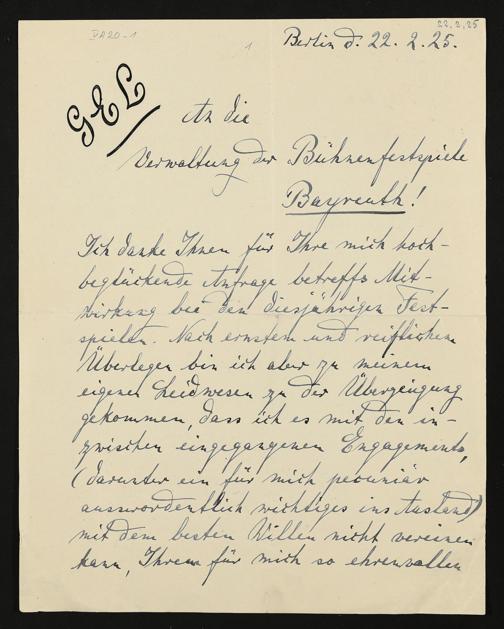 22.2.25
DA20-1
1
Berlin d. 22. 2. 25.
GEL
An die
Verwaltung der Bühnenfestspiele
Bayreuth!
Ich danke Ihnen für Ihre mich hoch-
beglückende Anfrage betreffs Mit-
wirkung bei den diesjährigen Fest-
spielen. Nach ernstem und reiflichem
Überlegen bin ich aber zu meinem
eigenen Leidwesen zu der Überzeugung
gekommen, dass ich es mit den in-
zwischen eingegangenen Engagements,
(darunter ein für mich pecuniär
ausserordentlich wichtiges ins Ausland)
mit dem besten Willen nicht vereinen
kann, Ihrem für mich so ehrenvollen